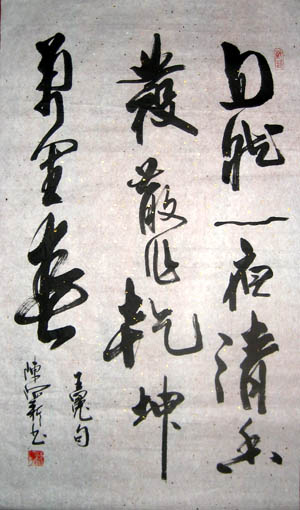 自然一夜清香
發散作乾坤
萬里春
王冕句
陳 新书